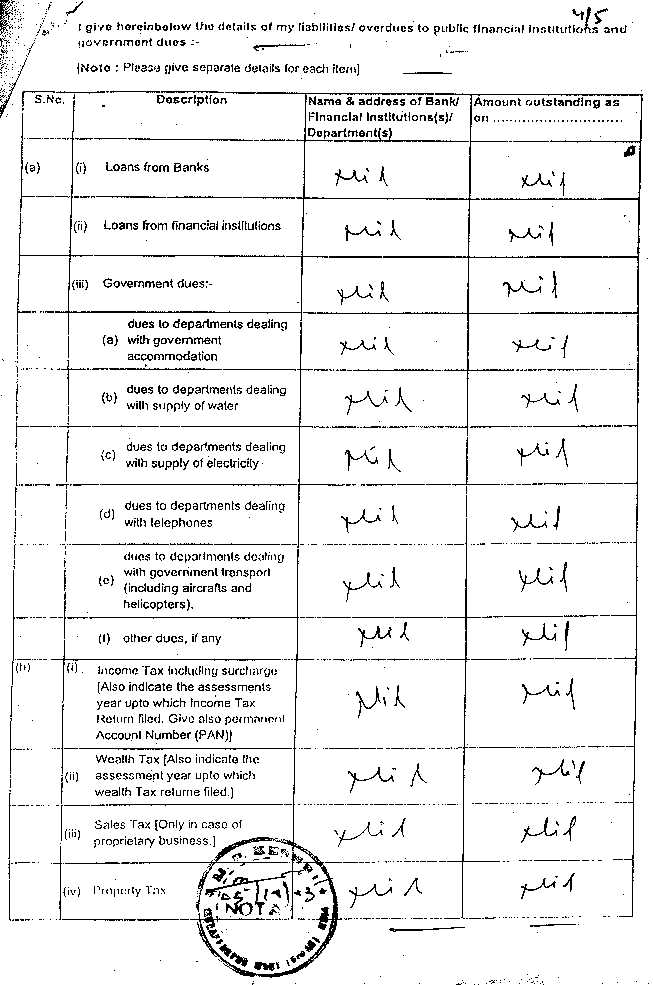 4/5
I give hereinbelow the details of my liabilities/ overdues to public financial institutions and
government dues :-
[Note : Please give separate details for each item]
S.No. Description Name & address of Bank/ Financial Institutions(s)/ Department(s) Amount outstanding as on ..............................
(a) (i) Loans from Banks Nil Nil
(ii) Loans from financial institutions Nil Nil
(iii) Government dues:- Nil Nil
(a) dues to departments dealing with government accommodation Nil Nil
(b) dues to departments dealing with supply of water Nil Nil
(c) dues to departments dealing with supply of electricity Nil Nil
(d) dues to departments dealing with telephones Nil Nil
(e) dues to departments dealing with government transport (including aircrafts and helicopters). Nil Nil
(f) other dues, if any Nil Nil
(b) (i) Income Tax including surcharge [Also indicate the assessments year upto which Income Tax Return filed. Give also permanent Account Number (PAN)] Nil Nil
(ii) Wealth Tax [Also indicate the assessment year upto which wealth Tax returne filed.] Nil Nil
(iii) Sales Tax [Only in case of proprietary business.] Nil Nil
(iv) Property Tax Nil Nil
NOTA